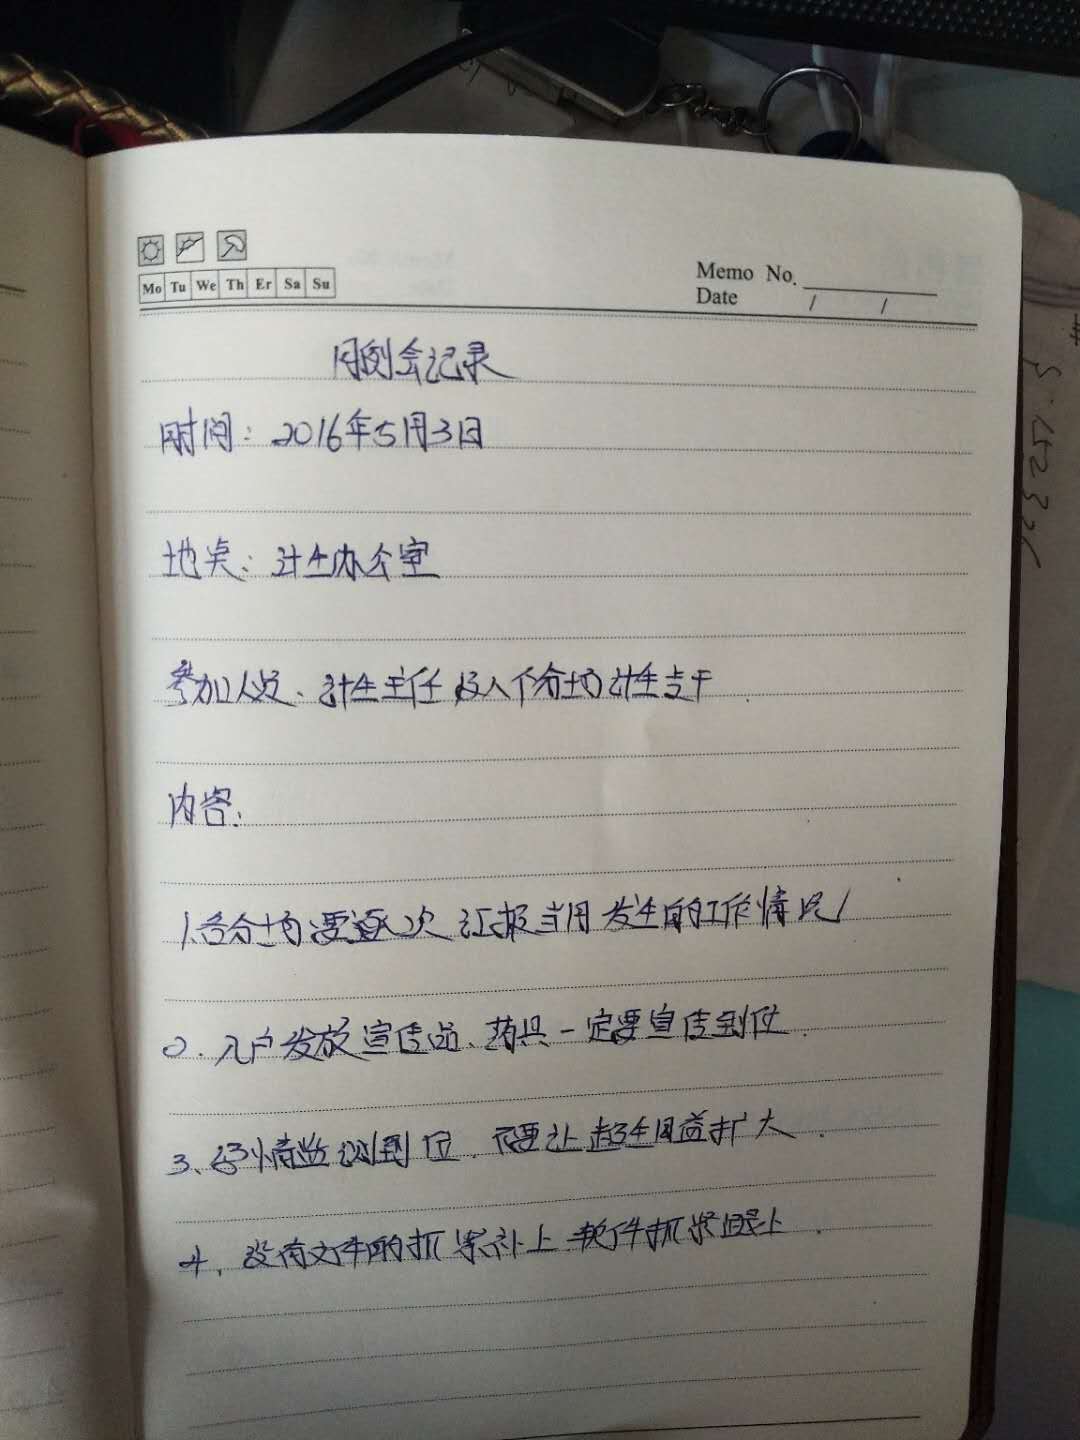 Mo Tu We Th Er Sa Su
Memo No.
Date / /
月例会记录
时间：2016年5月3日
地点：计生办公室
参加人员、计生主任及八个分场计生专干.
内容：
1.各分场要逐次汇报当月发生的工作情况
2.入户发放宣传品、药具一定要宣传到位.
3、孕情监测到位.不要让超生月益扩大.
4.没有文件的抓紧补上.软件抓紧跟上.